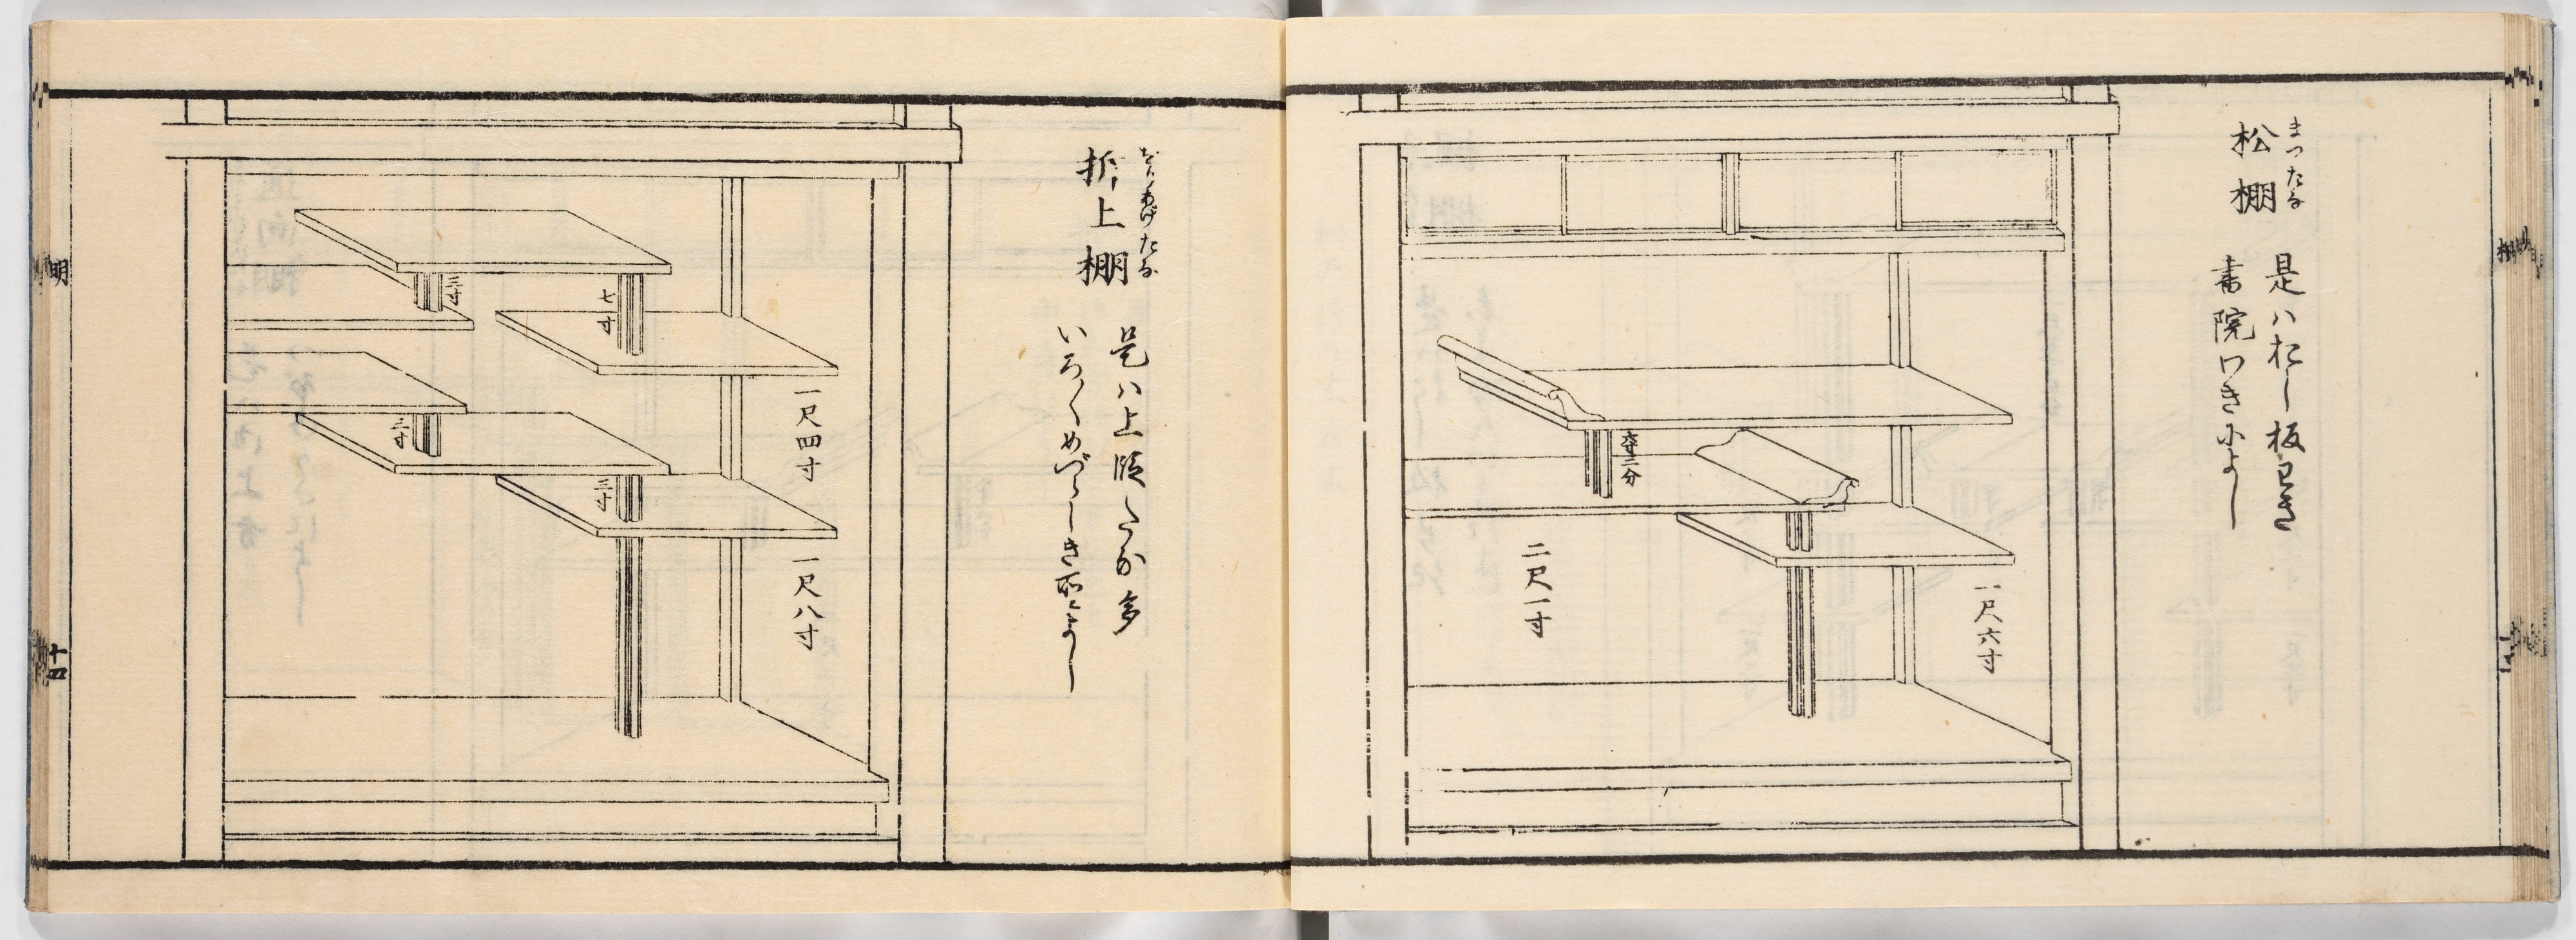 まつたな
松棚
是ハおにし板わき
書院わきによし
六寸二分
一尺六寸
二尺一寸
をりあげたな
折上棚
是ハ上段したか多
いろ〳〵めづらしき所によし
三寸
七寸
一尺四寸
三寸
三寸
一尺八寸
十四